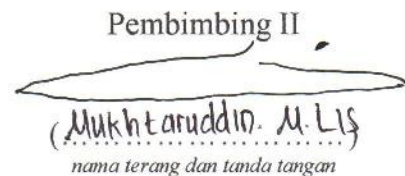 Pembimbing II
(Mukhtaruddin. M.LIS)
nama terang dan tanda tangan